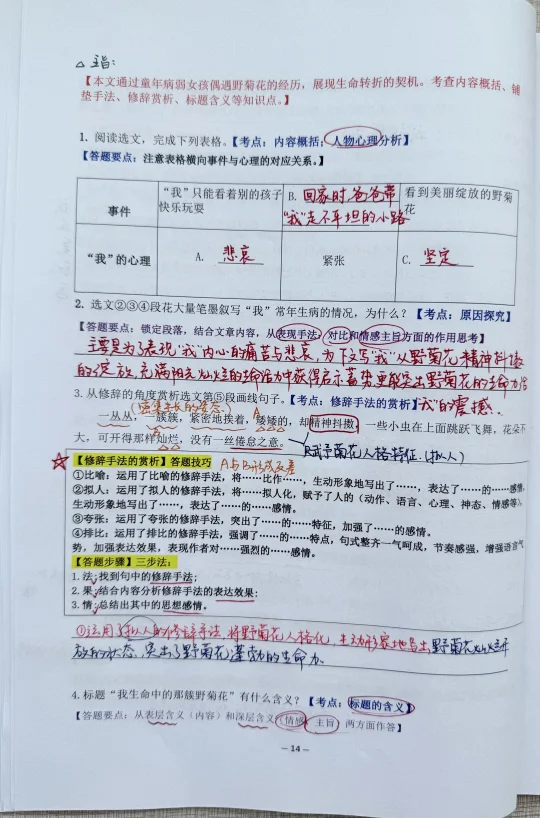 △ 主旨：
【本文通过童年病弱女孩偶遇野菊花的经历，展现生命转折的契机。考查内容概括、铺
垫手法、修辞赏析、标题含义等知识点。】
1. 阅读选文，完成下列表格。【考点：内容概括；人物心理分析】
【答题要点：注意表格横向事件与心理的对应关系。】
事件
“我”只能看着别的孩子
快乐玩耍
B. 回家时，爸爸带
“我”走不平坦的小路
看到美丽绽放的野菊
花
“我”的心理
A. 悲哀
紧张
C. 坚定
2. 选文②③④段花大量笔墨叙写“我”常年生病的情况，为什么？【考点：原因探究】
【答题要点：锁定段落，结合文章内容，从表现手法、对比和情感主旨方面的作用思考】
主要是为了表现“我”内心的痛苦与悲哀，为下文写“我”从野菊花精神抖擞
的绽放，充满阳光灿烂的生命活力中获得启示蓄势，更能突出野菊花的生命力给
“我”的震撼。
3. 从修辞的角度赏析选文第⑤段画线句子。【考点：修辞手法的赏析】
A
一丛丛，一簇簇，紧密地挨着，矮矮的，却精神抖擞，一些小虫在上面跳跃飞舞，花朵不
大，可开得那样灿烂，没有一丝倦怠之意。
B赋予菊花人格特征（拟人）
【修辞手法的赏析】答题技巧
A与B形成反差
①比喻：运用了比喻的修辞手法，将……比作……，生动形象地写出了……，表达了……的……感情。
②拟人：运用了拟人的修辞手法，将……拟人化，赋予了人的（动作、语言、心理、神态、情感等），
生动形象地写出了……，表达了……的……感情。
③夸张：运用了夸张的修辞手法，突出了……的……特征，加强了……的感情。
④排比：运用了排比的修辞手法，强调了……的……特点，句式整齐一气呵成，节奏感强，增强语言气
势，加强表达效果，表现作者对……强烈的……感情。
【答题步骤】三步法：
1. 法：找到句中的修辞手法；
2. 果：结合内容分析修辞手法的表达效果；
3. 情：总结出其中的思想感情。
①运用了拟人的修辞手法，将野菊花人格化，生动形象地写出野菊花灿烂开
放的状态，突出了野菊花蓬勃的生命力。
4. 标题“我生命中的那簇野菊花”有什么含义？【考点：标题的含义】
【答题要点：从表层含义（内容）和深层含义（情感、主旨）两方面作答】
— 14 —